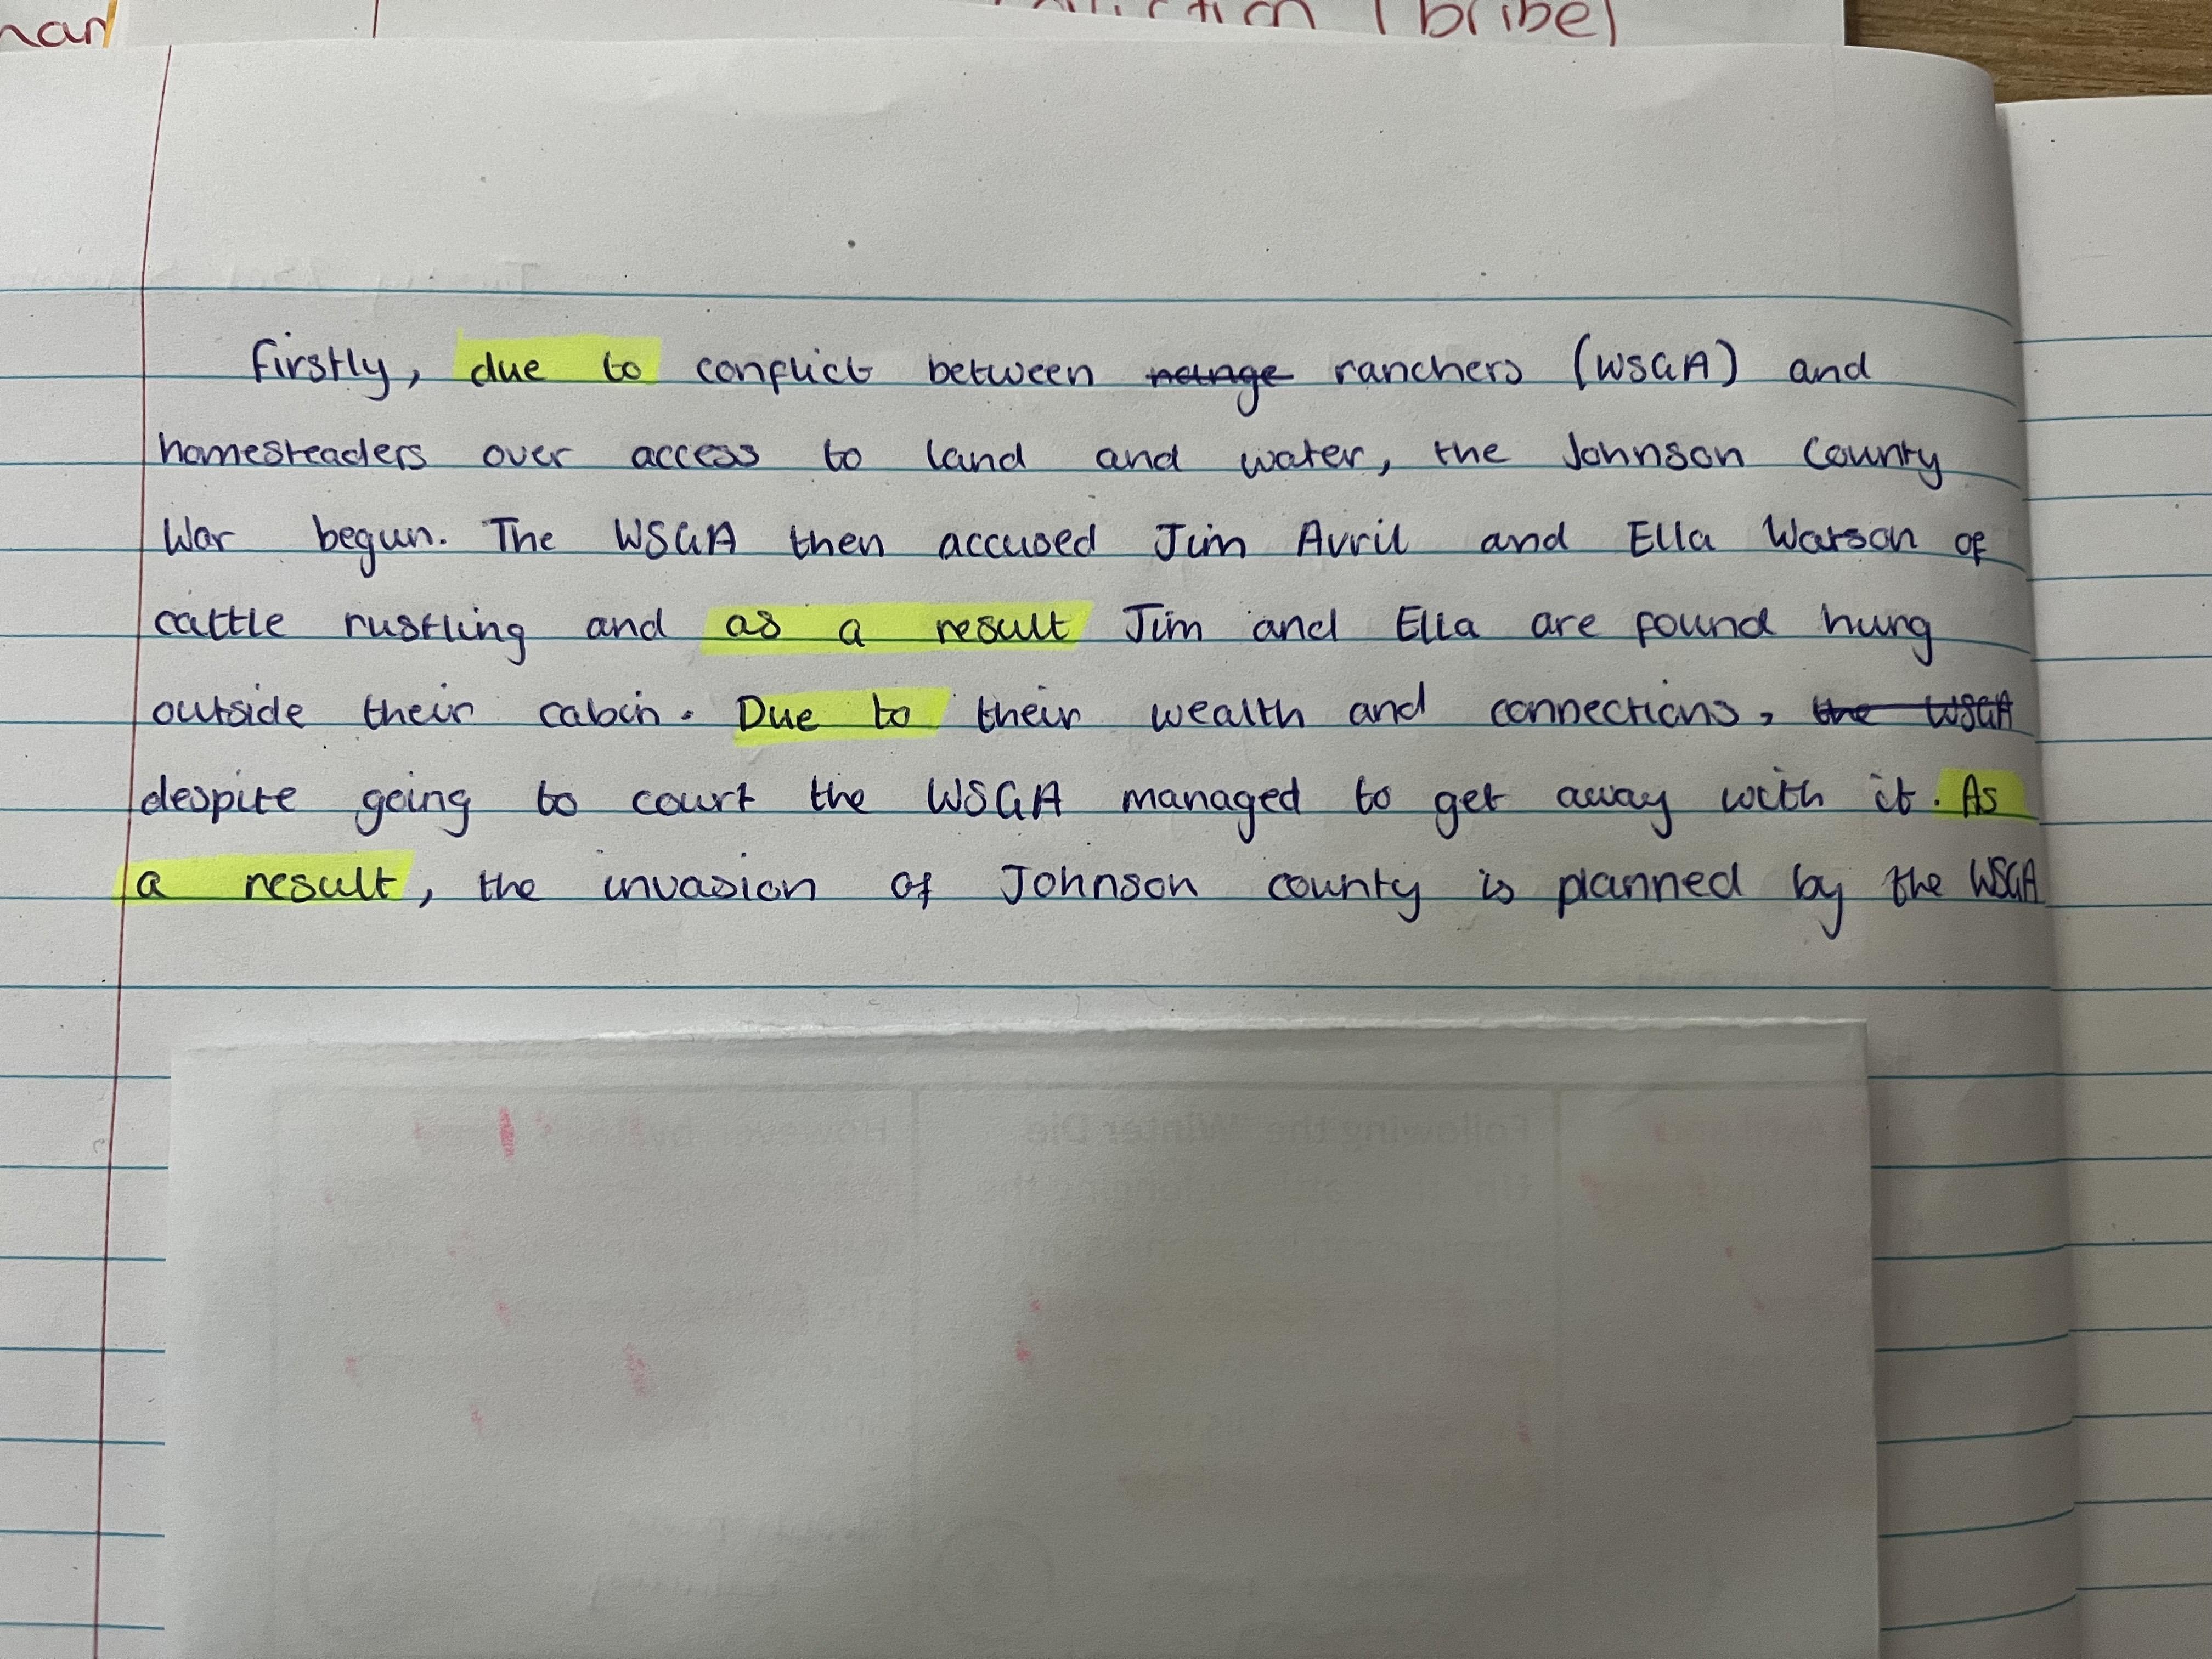 (bribe)
Firstly, due to conflict between ranchers (WSGA) and
homesteaders over access to land and water, the Johnson County
War begun. The WSGA then accused Jim Avril and Ella Watson of
cattle rustling and as a result Jim and Ella are found hung
outside their cabin. Due to their wealth and connections, the WSGA
despite going to court the WSGA managed to get away with it. As
a result, the invasion of Johnson county is planned by the WSGA
Following the Winter Die
However by